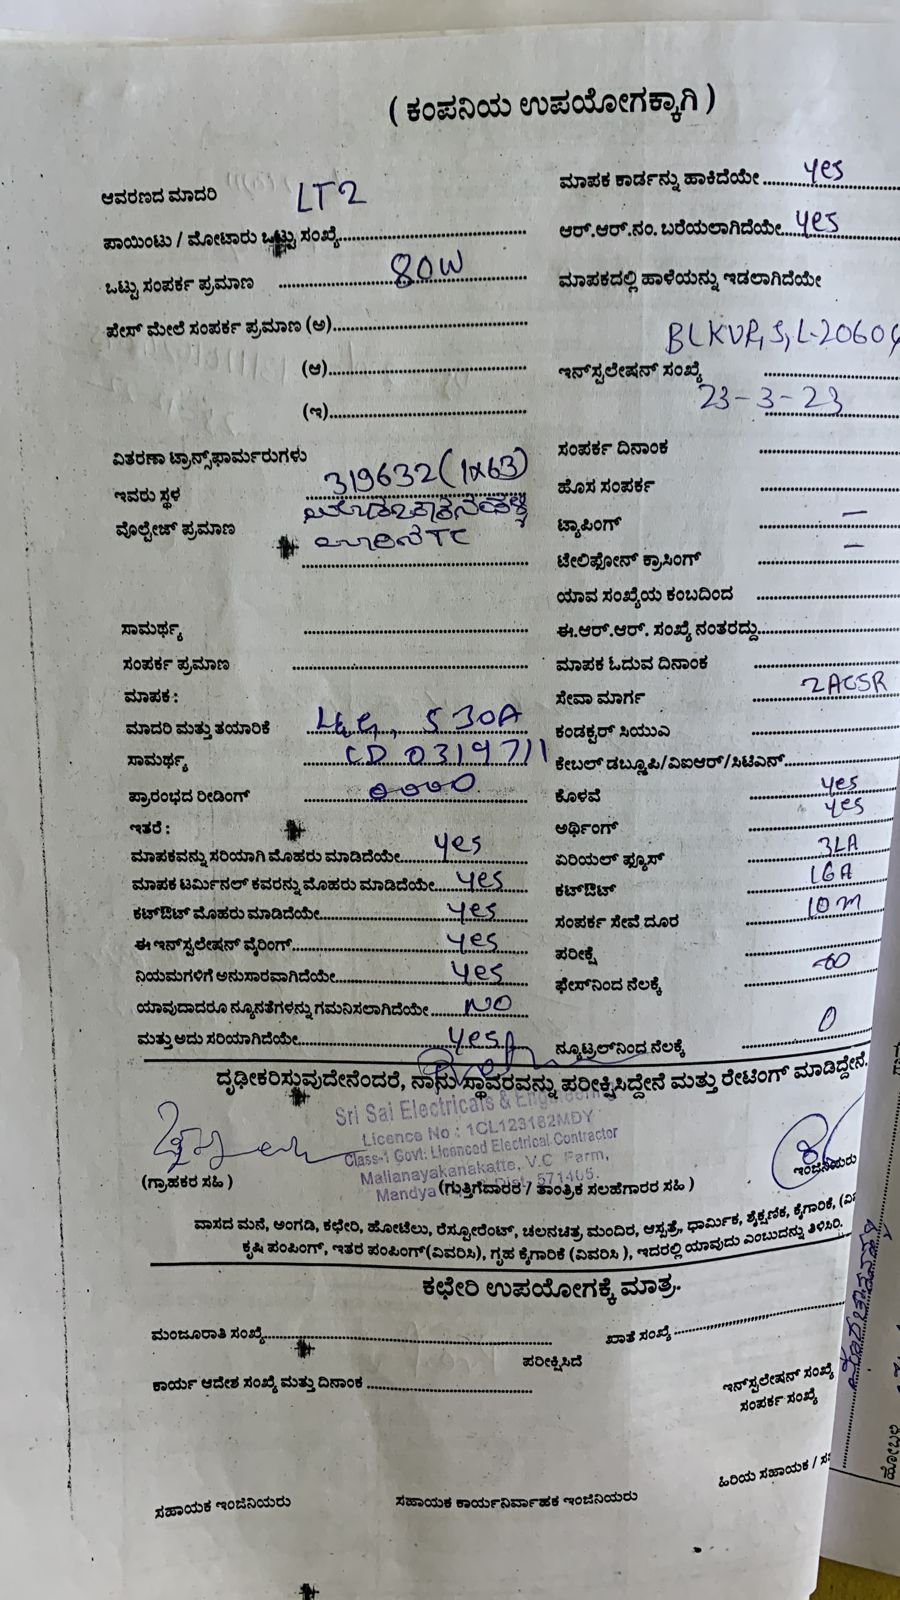 ( ಕಂಪನಿಯ ಉಪಯೋಗಕ್ಕಾಗಿ )
ಆವರಣದ ಮಾದರಿ LT2
ಮಾಪಕ ಕಾರ್ಡನ್ನು ಹಾಕಿದೆಯೇ yes
ಪಾಯಿಂಟು / ಮೋಟಾರು ಒಟ್ಟು ಸಂಖ್ಯೆ
ಆರ್.ಆರ್.ನಂ. ಬರೆಯಲಾಗಿದೆಯೇ yes
ಒಟ್ಟು ಸಂಪರ್ಕ ಪ್ರಮಾಣ 80W
ಮಾಪಕದಲ್ಲಿ ಹಾಳೆಯನ್ನು ಇಡಲಾಗಿದೆಯೇ
ಪೇಸ್ ಮೇಲೆ ಸಂಪರ್ಕ ಪ್ರಮಾಣ (ಅ)
(ಆ)
ಇನ್‌ಸ್ಪಲೇಷನ್ ಸಂಖ್ಯೆ
23-3-23
(ಇ)
ವಿತರಣಾ ಟ್ರಾನ್ಸ್‌ಫಾರ್ಮರುಗಳು
ಸಂಪರ್ಕ ದಿನಾಂಕ
ಇವರು ಸ್ಥಳ 319632 (1x63)
ಹೊಸ ಸಂಪರ್ಕ
ವೊಲ್ಟೇಜ್ ಪ್ರಮಾಣ
ಟ್ಯಾಪಿಂಗ್ —
TC
ಟೇಲಿಫೋನ್ ಕ್ರಾಸಿಂಗ್ —
ಯಾವ ಸಂಖ್ಯೆಯ ಕಂಬದಿಂದ
ಸಾಮರ್ಥ್ಯ
ಈ.ಆರ್.ಆರ್. ಸಂಖ್ಯೆ ನಂತರದ್ದು
ಸಂಪರ್ಕ ಪ್ರಮಾಣ
ಮಾಪಕ ಓದುವ ದಿನಾಂಕ
ಮಾಪಕ :
ಸೇವಾ ಮಾರ್ಗ 2ACSR
ಮಾದರಿ ಮತ್ತು ತಯಾರಿಕೆ 5 30A
ಕಂಡಕ್ಟರ್ ಸಿಯುಎ
ಸಾಮರ್ಥ್ಯ CD 0319711
ಕೇಬಲ್ ಡಬ್ಲೂಪಿ/ವಿಐಆರ್/ಸಿಟಿಎನ್
ಪ್ರಾರಂಭದ ರೀಡಿಂಗ್ 0000
ಕೊಳವೆ yes
ಇತರೆ :
ಅರ್ಥಿಂಗ್ yes
ಮಾಪಕವನ್ನು ಸರಿಯಾಗಿ ಮೊಹರು ಮಾಡಿದೆಯೇ yes
ಏರಿಯಲ್ ಫ್ಯೂಸ್
ಮಾಪಕ ಟರ್ಮಿನಲ್ ಕವರನ್ನು ಮೊಹರು ಮಾಡಿದೆಯೇ yes
ಕಟ್ಔಟ್ 16A
ಕಟ್ಔಟ್ ಮೊಹರು ಮಾಡಿದೆಯೇ yes
ಸಂಪರ್ಕ ಸೇವೆ ದೂರ 10m
ಈ ಇನ್‌ಸ್ಪಲೇಷನ್ ವೈರಿಂಗ್ yes
ಪರೀಕ್ಷೆ
ನಿಯಮಗಳಿಗೆ ಅನುಸಾರವಾಗಿದೆಯೇ yes
ಫೇಸ್‌ನಿಂದ ನೆಲಕ್ಕೆ
ಯಾವುದಾದರೂ ನ್ಯೂನತೆಗಳನ್ನು ಗಮನಿಸಲಾಗಿದೆಯೇ NO
ಮತ್ತು ಅದು ಸರಿಯಾಗಿದೆಯೇ yes
ನ್ಯೂಟ್ರಲ್‌ನಿಂದ ನೆಲಕ್ಕೆ 0
ದೃಢೀಕರಿಸುವುದೇನೆಂದರೆ, ನಾನು ಸ್ಥಾವರವನ್ನು ಪರೀಕ್ಷಿಸಿದ್ದೇನೆ ಮತ್ತು ರೇಟಿಂಗ್ ಮಾಡಿದ್ದೇನೆ.
Sri Sai Electricals &
Licence No : 1CL123182MDY
Class-1 Govt: Licenced Electrical Contractor
Mallanayakanakatte, V.C Farm,
Mandya 571405.
(ಗ್ರಾಹಕರ ಸಹಿ )
(ಗುತ್ತಿಗೆದಾರರ / ತಾಂತ್ರಿಕ ಸಲಹೆಗಾರರ ಸಹಿ )
ಇಂಜಿನಿಯರು
ವಾಸದ ಮನೆ, ಅಂಗಡಿ, ಕಛೇರಿ, ಹೋಟೆಲು, ರೆಸ್ಟೋರೆಂಟ್, ಚಲನಚಿತ್ರ ಮಂದಿರ, ಆಸ್ಪತ್ರೆ, ಧಾರ್ಮಿಕ, ಶೈಕ್ಷಣಿಕ, ಕೈಗಾರಿಕೆ,
ಕೃಷಿ ಪಂಪಿಂಗ್, ಇತರ ಪಂಪಿಂಗ್(ವಿವರಿಸಿ), ಗೃಹ ಕೈಗಾರಿಕೆ (ವಿವರಿಸಿ ), ಇದರಲ್ಲಿ ಯಾವುದು ಎಂಬುದನ್ನು ತಿಳಿಸಿರಿ.
ಕಛೇರಿ ಉಪಯೋಗಕ್ಕೆ ಮಾತ್ರ.
ಮಂಜೂರಾತಿ ಸಂಖ್ಯೆ
ಖಾತೆ ಸಂಖ್ಯೆ
ಪರೀಕ್ಷಿಸಿದೆ
ಕಾರ್ಯ ಆದೇಶ ಸಂಖ್ಯೆ ಮತ್ತು ದಿನಾಂಕ
ಇನ್‌ಸ್ಪಲೇಷನ್ ಸಂಖ್ಯೆ
ಸಂಪರ್ಕ ಸಂಖ್ಯೆ
ಸಹಾಯಕ ಇಂಜಿನಿಯರು
ಸಹಾಯಕ ಕಾರ್ಯನಿರ್ವಾಹಕ ಇಂಜಿನಿಯರು
ಹಿರಿಯ ಸಹಾಯಕ /
ಹೋಬಳಿ